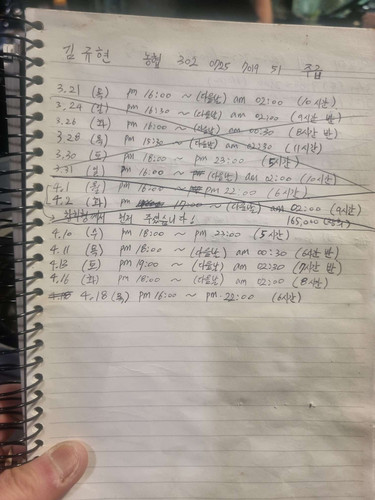 김규현 농협 302 0725 7019 51 주급
3.21 (목) pm 16:00 ~ (다음날) am 02:00 (10시간)
3.24 (일) pm 16:30 ~ (다음날) am 02:00 (9시간 반)
3.26 (화) pm 16:00 ~ (다음날) am 00:30 (8시간 반)
3.28 (목) pm 15:30 ~ (다음날) am 02:30 (11시간)
3.30 (토) pm 18:00 ~ pm 23:00 (5시간)
3.31 (일) pm 16:00 ~ (다음날) am 02:00 (10시간)
4.1 (월) pm 16:00 ~ pm 22:00 (6시간)
4.2 (화) pm 17:00 ~ (다음날) am 02:00 (9시간)
먼저 주셨습니다! 165,000
4.10 (수) pm 18:00 ~ pm 23:00 (5시간)
4.11 (목) pm 18:00 ~ (다음날) am 00:30 (6시간 반)
4.13 (토) pm 19:00 ~ (다음날) am 02:30 (7시간 반)
4.16 (화) pm 18:00 ~ (다음날) am 02:00 (8시간)
4.18 (목) pm 16:00 ~ pm 22:00 (6시간)